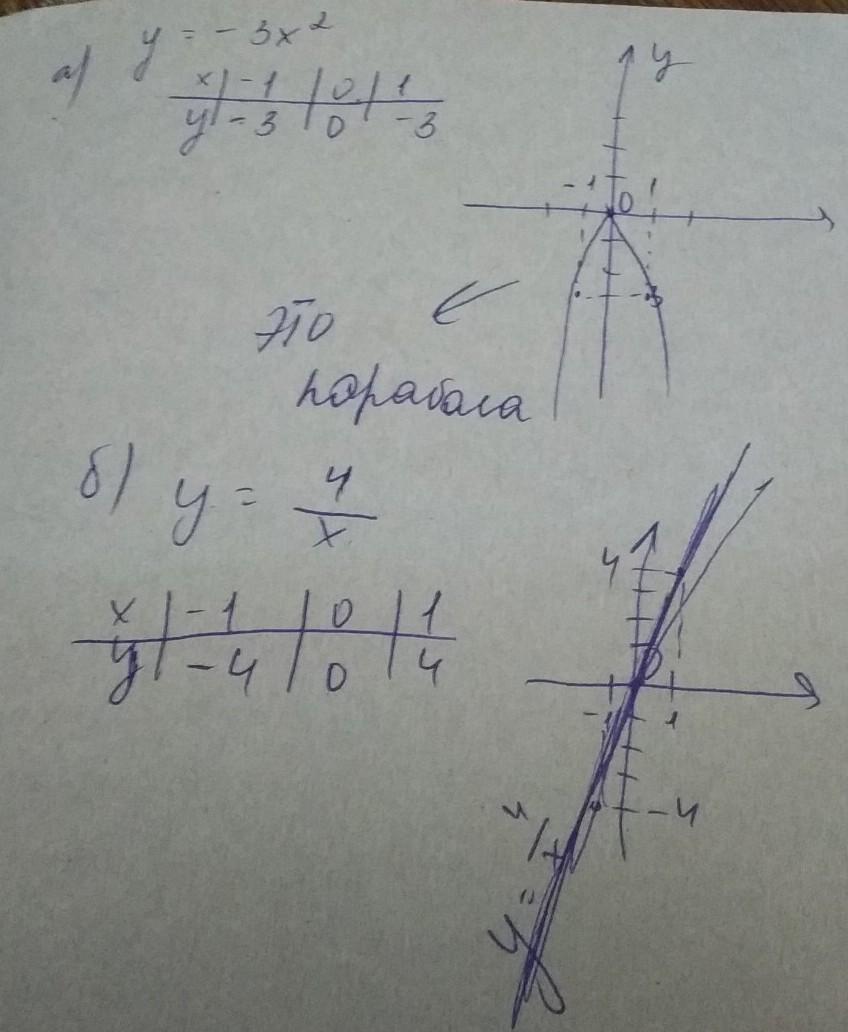 а) y = - 3x²
x | -1 | 0 | 1
y | -3 | 0 | -3
y
-1 0 1
-3
это
парабола
б) y = 4/x
x | -1 | 0 | 1
y | -4 | 0 | 4
4
0
-1 1
-4
y = 4/x